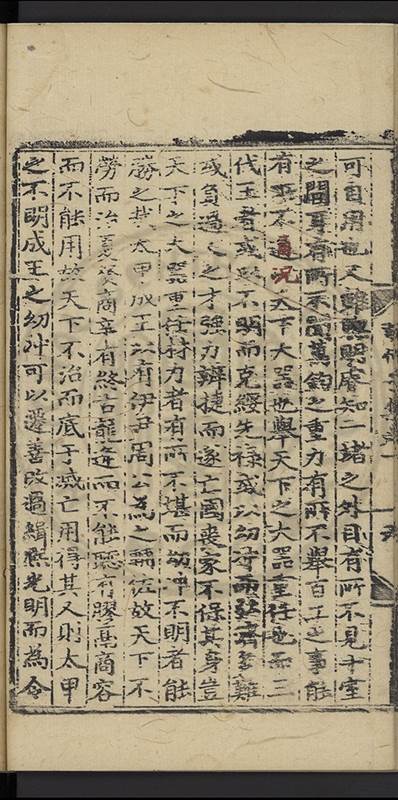 可自用也又雖照明睿知二堵之外目有所不見十室
之間耳有所不聞萬鈞之重力有所不舉百工之事能
有所不通況天下大器也舉天下之大器重任也而三
代王者或以不明而克綏先祿或以幼沖而弘濟多難
或負過人之才強力辨捷而遂亡國喪家不保其身豈
天下之大器重任持力者有所不堪而幼沖不明者能
勝之哉太甲成王以有伊尹周公為之輔佐故天下不
勞而治夏癸商辛有終古龍逄而不能聽有膠鬲商容
而不能用故天下不治而底于滅亡用得其人則太甲
之不明成王之幼沖可以遷善改過緝熙光明而為令